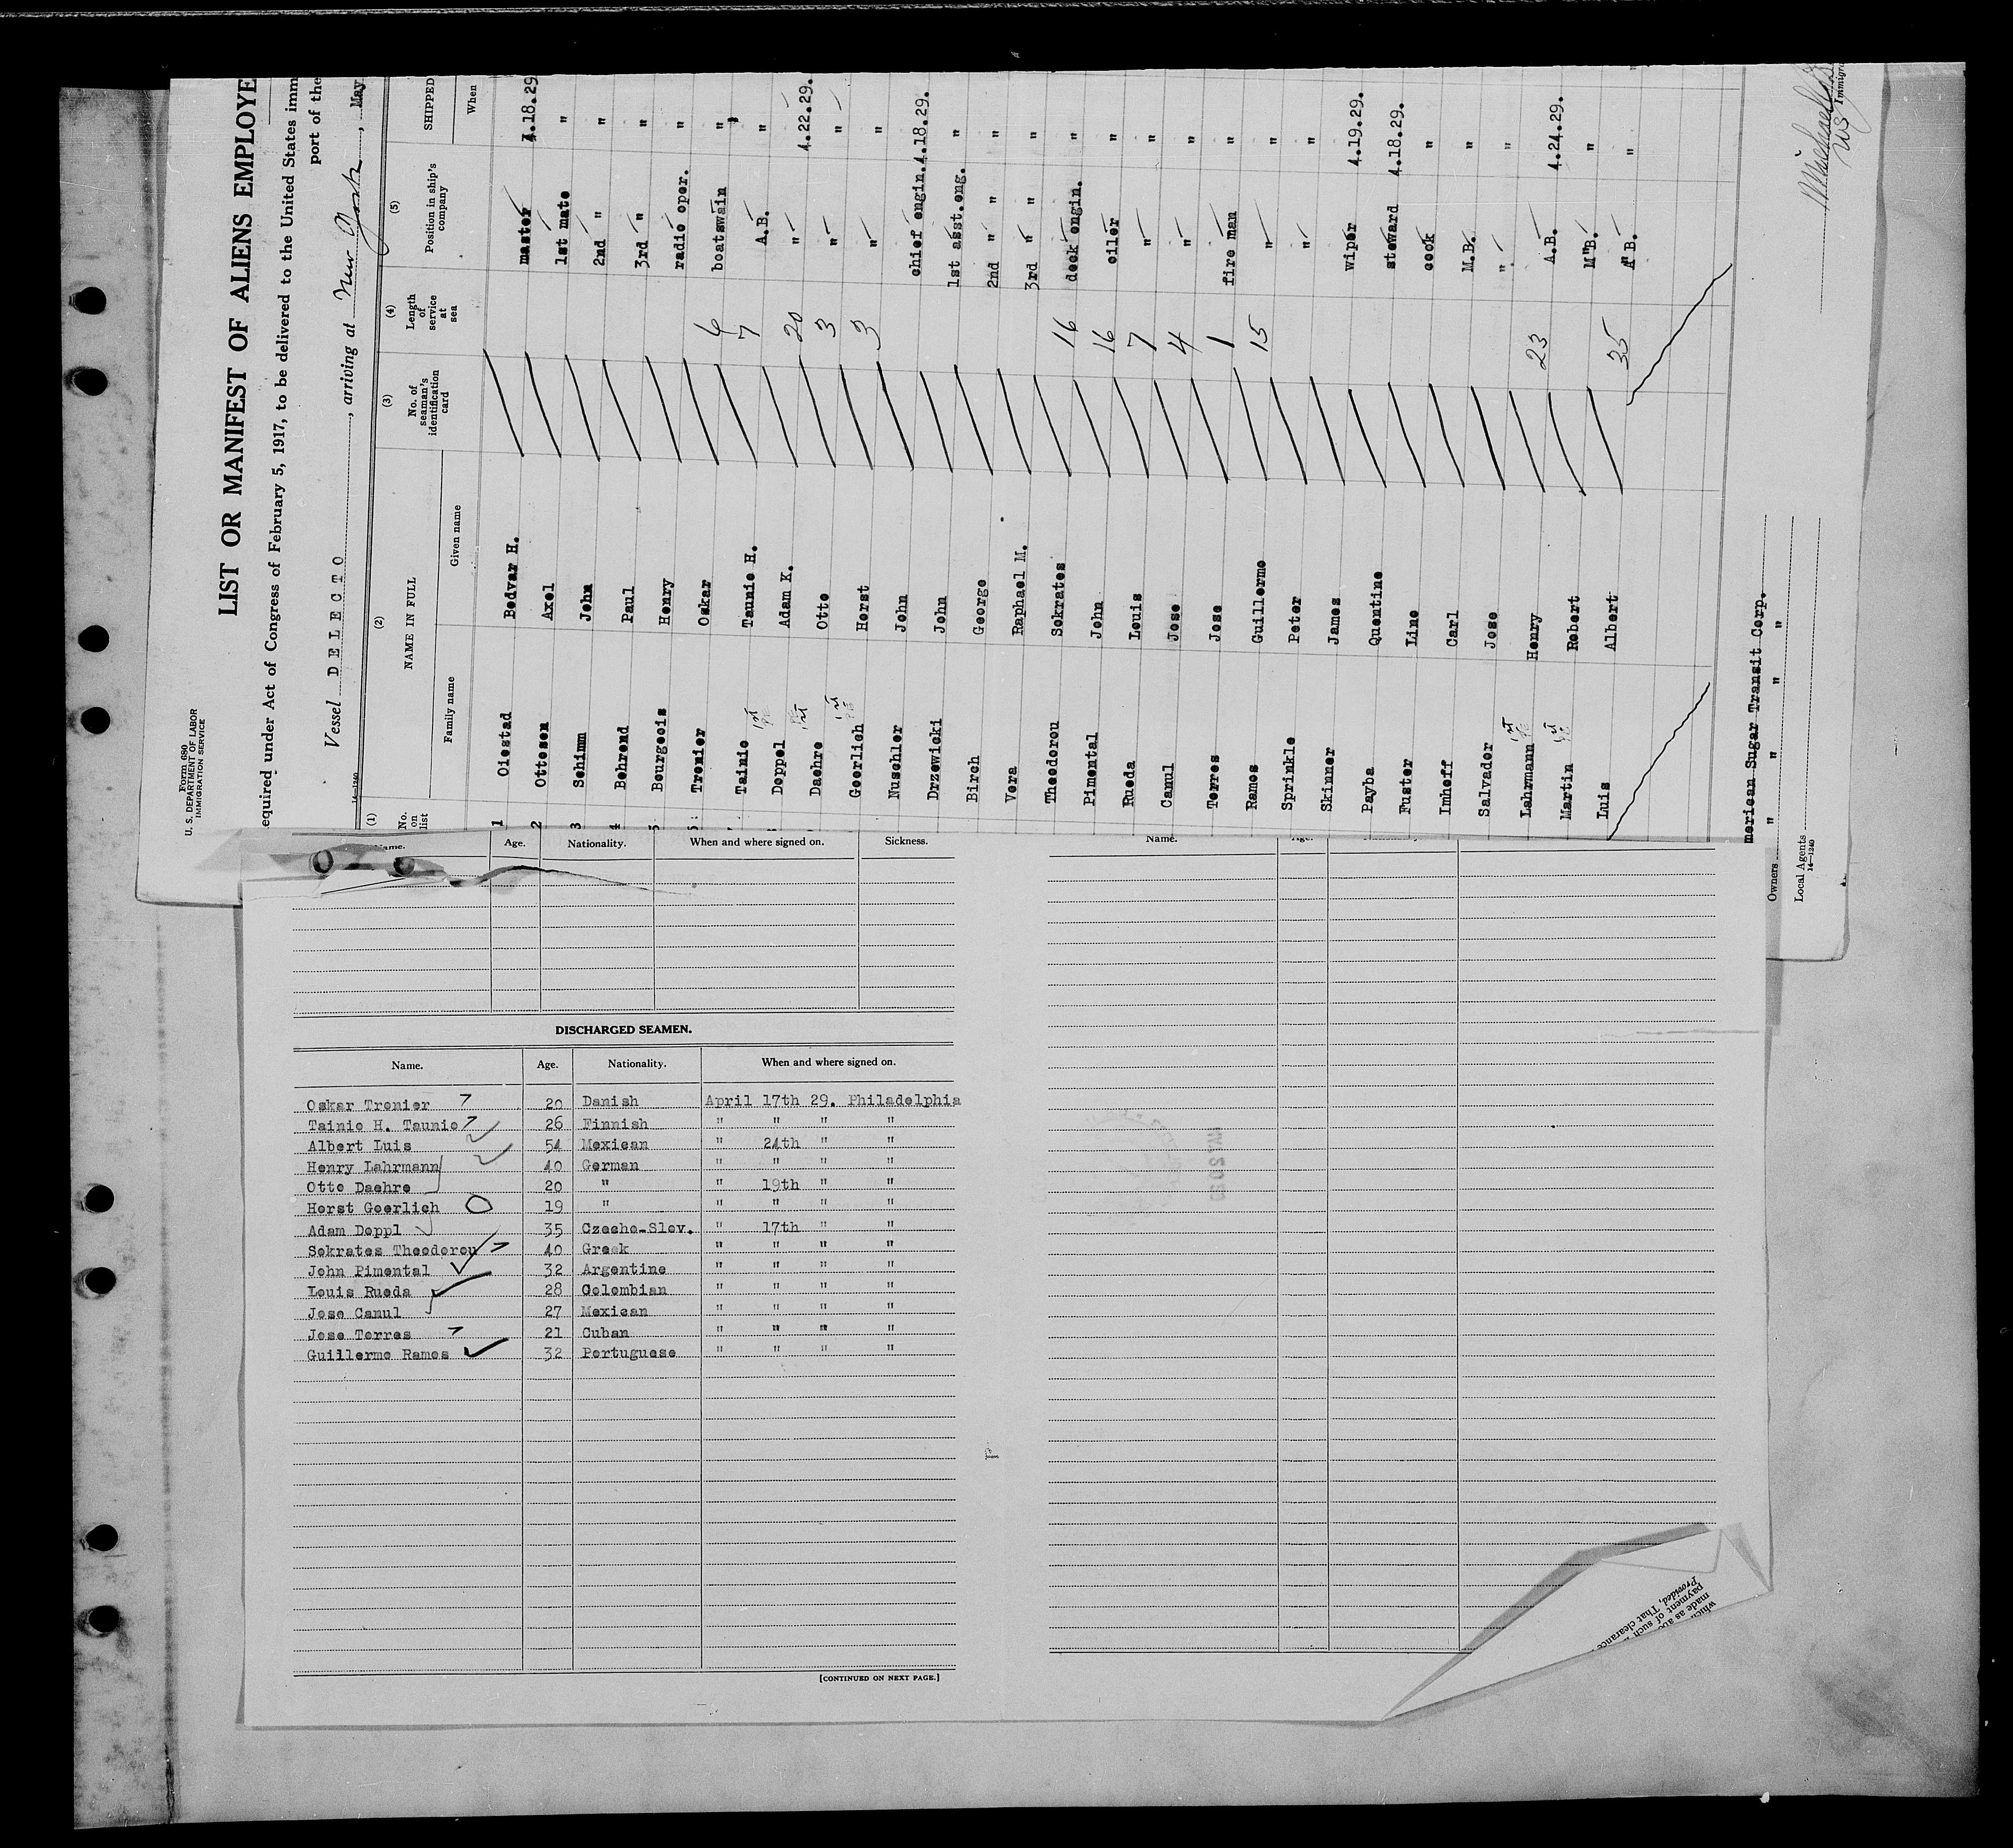 Form 680
U. S. DEPARTMENT OF LABOR
IMMIGRATION SERVICE
LIST OR MANIFEST OF ALIENS EMPLOYE
equired under Act of Congress of February 5, 1917, to be delivered to the United States imm
port of the
Vessel DELECTO, arriving at New York, May
14—1240
(1) (2) (3) (4) (5)
No. on list NAME IN FULL No. of seaman's identification card Length of service at sea Position in ship's company SHIPPED
Family name Given name When
1 Oiestad Bedvar H. master 4.18.29
2 Ottesen Axel 1st mate "
3 Schimm John 2nd " "
4 Behrend Paul 3rd " "
5 Bourgeois Henry radio oper. "
Tronier Oskar 6 boatswain "
Tainio Taunie H. 7 A.B. "
Deppel Adam K. 20 " 4.22.29.
Daehre Otto 3 " "
Goerlich Horst 3 " "
Nuschler John chief engin. 4.18.29.
Drzewicki John 1st asst.eng. "
Birch George 2nd " " "
Vera Raphael M. 3rd " " "
Theodorou Sokrates 16 deck engin. "
Pimental John 16 oiler "
Rueda Louis 7 " "
Camul Jose 4 " "
Torres Jose 1 fire man "
Ramos Guillerme 15 " "
Sprinkle Peter " "
Skinner James wiper 4.19.29.
Payba Quentine steward 4.18.29.
Fuster Line cook "
Imhoff Carl M.B. "
Salvador Jose " "
Lahrmann Henry 23 A.B. 4.24.29.
Martin Robert M"B. "
Luis Albert 35 A"B. "
merican Sugar Transit Corp.
Owners " " " "
Local Agents
14—1240
Immigra
Name. Age. Nationality. When and where signed on. Sickness.
DISCHARGED SEAMEN.
Name. Age. Nationality. When and where signed on.
Oskar Tronier 20 Danish April 17th 29. Philadelphia
Tainio H. Taunie 26 Finnish " " " "
Albert Luis 54 Mexican " 24th " "
Henry Lahrmann 40 German " " " "
Otto Daehre 20 " " 19th " "
Horst Goerlich 19 " " " " "
Adam Doppl 35 Czecho-Slov. " 17th " "
Sokrates Theodorou 40 Greek " " " "
John Pimental 32 Argentine " " " "
Louis Rueda 28 Colombian " " " "
Jose Camul 27 Mexican " " " "
Jose Torres 21 Cuban " " " "
Guillerme Ramos 32 Portuguese " " " "
[CONTINUED ON NEXT PAGE.]
Name.
made as a
payment of such
Provided, That clearance